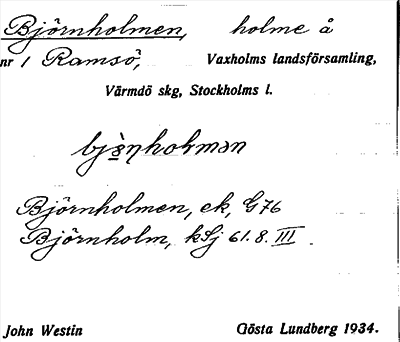 Björnholmen, holme å
nr 1 Ramsö, Vaxholms landsförsamling,
Värmdö skg, Stockholms l.
Björnholmen, ek, G 76
Björnholm, kSj 61.8. III.
John Westin Gösta Lundberg 1934.